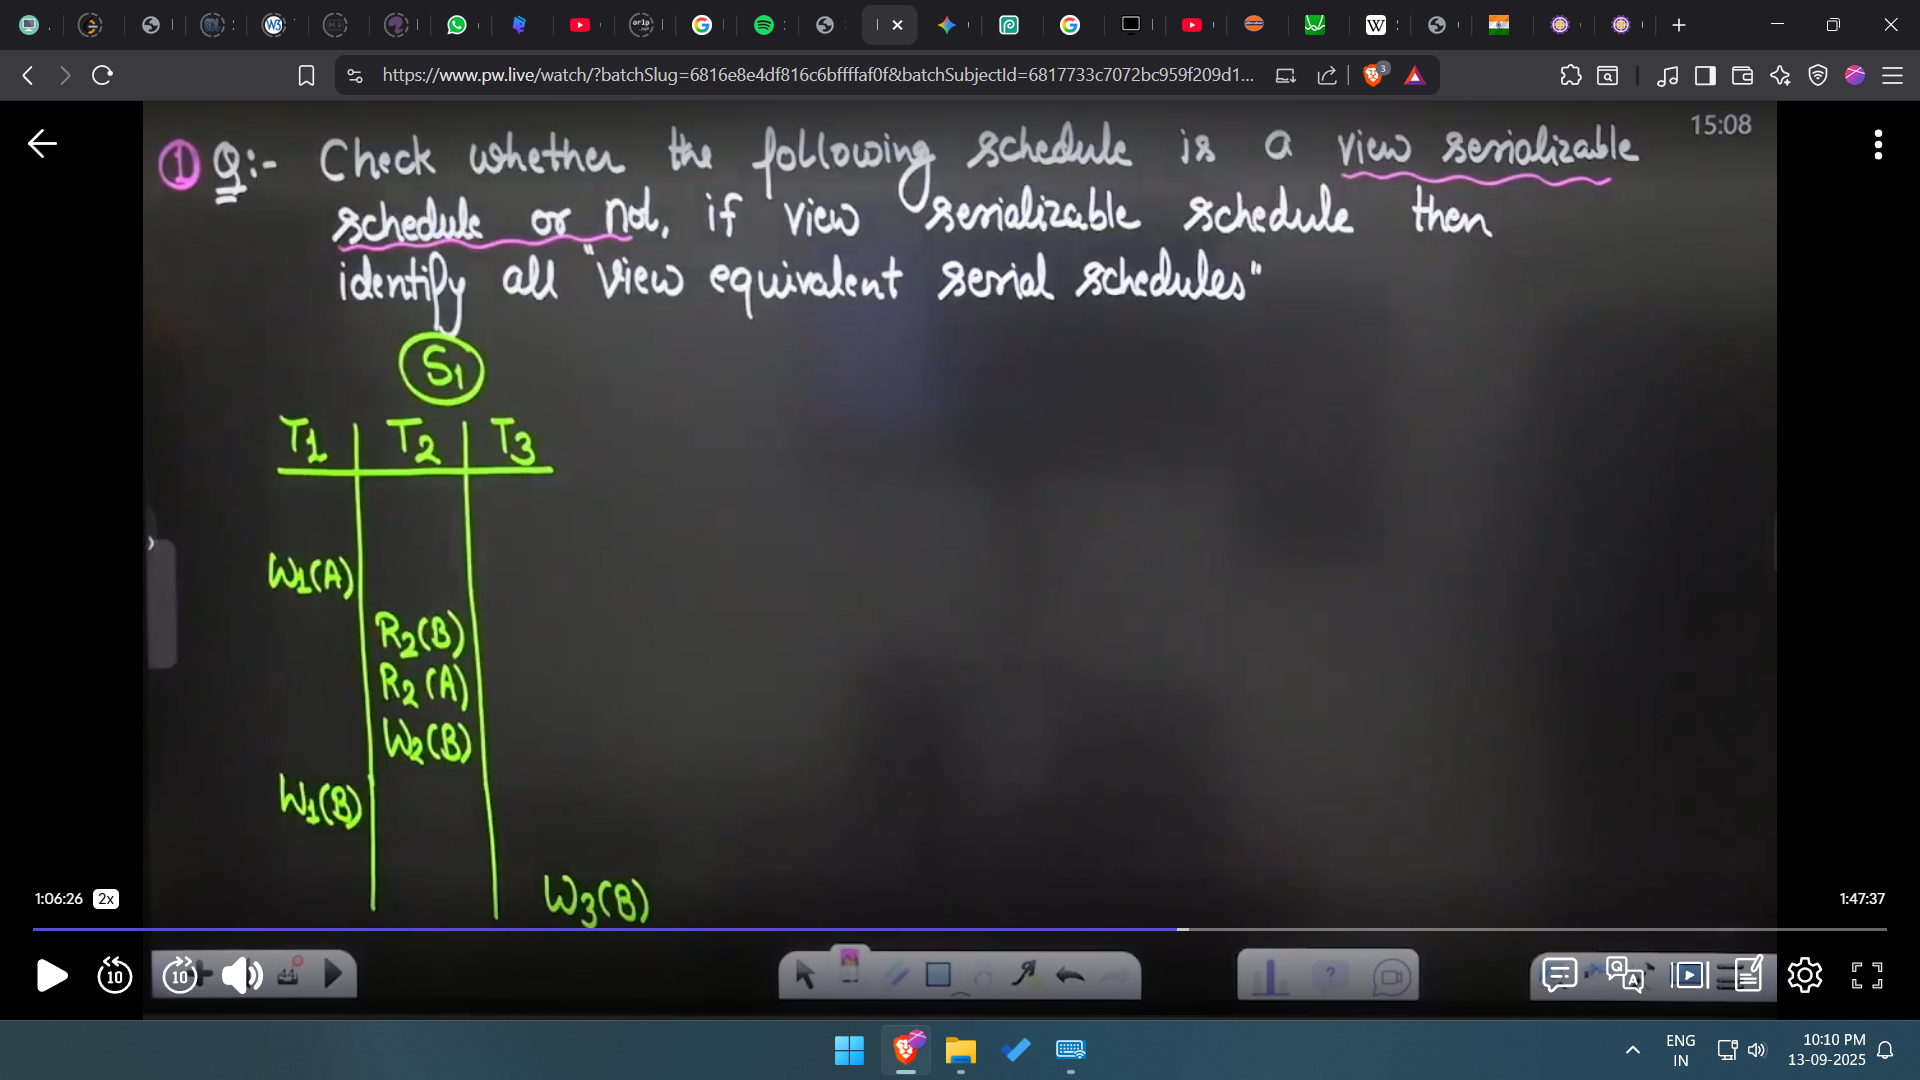 https://www.pw.live/watch/?batchSlug=6816e8e4df816c6bffffaf0f&batchSubjectId=6817733c7072bc959f209d1...
3
15:08
① Q:- Check whether the following schedule is a view serializable
schedule or not, if view serializable schedule then
identify all "view equivalent serial schedules"
S1
T1 T2 T3
W1(A)
R2(B)
R2(A)
W2(B)
W1(B)
W3(B)
1:06:26 2x
1:47:37
10 10
44
ENG
IN
10:10 PM
13-09-2025